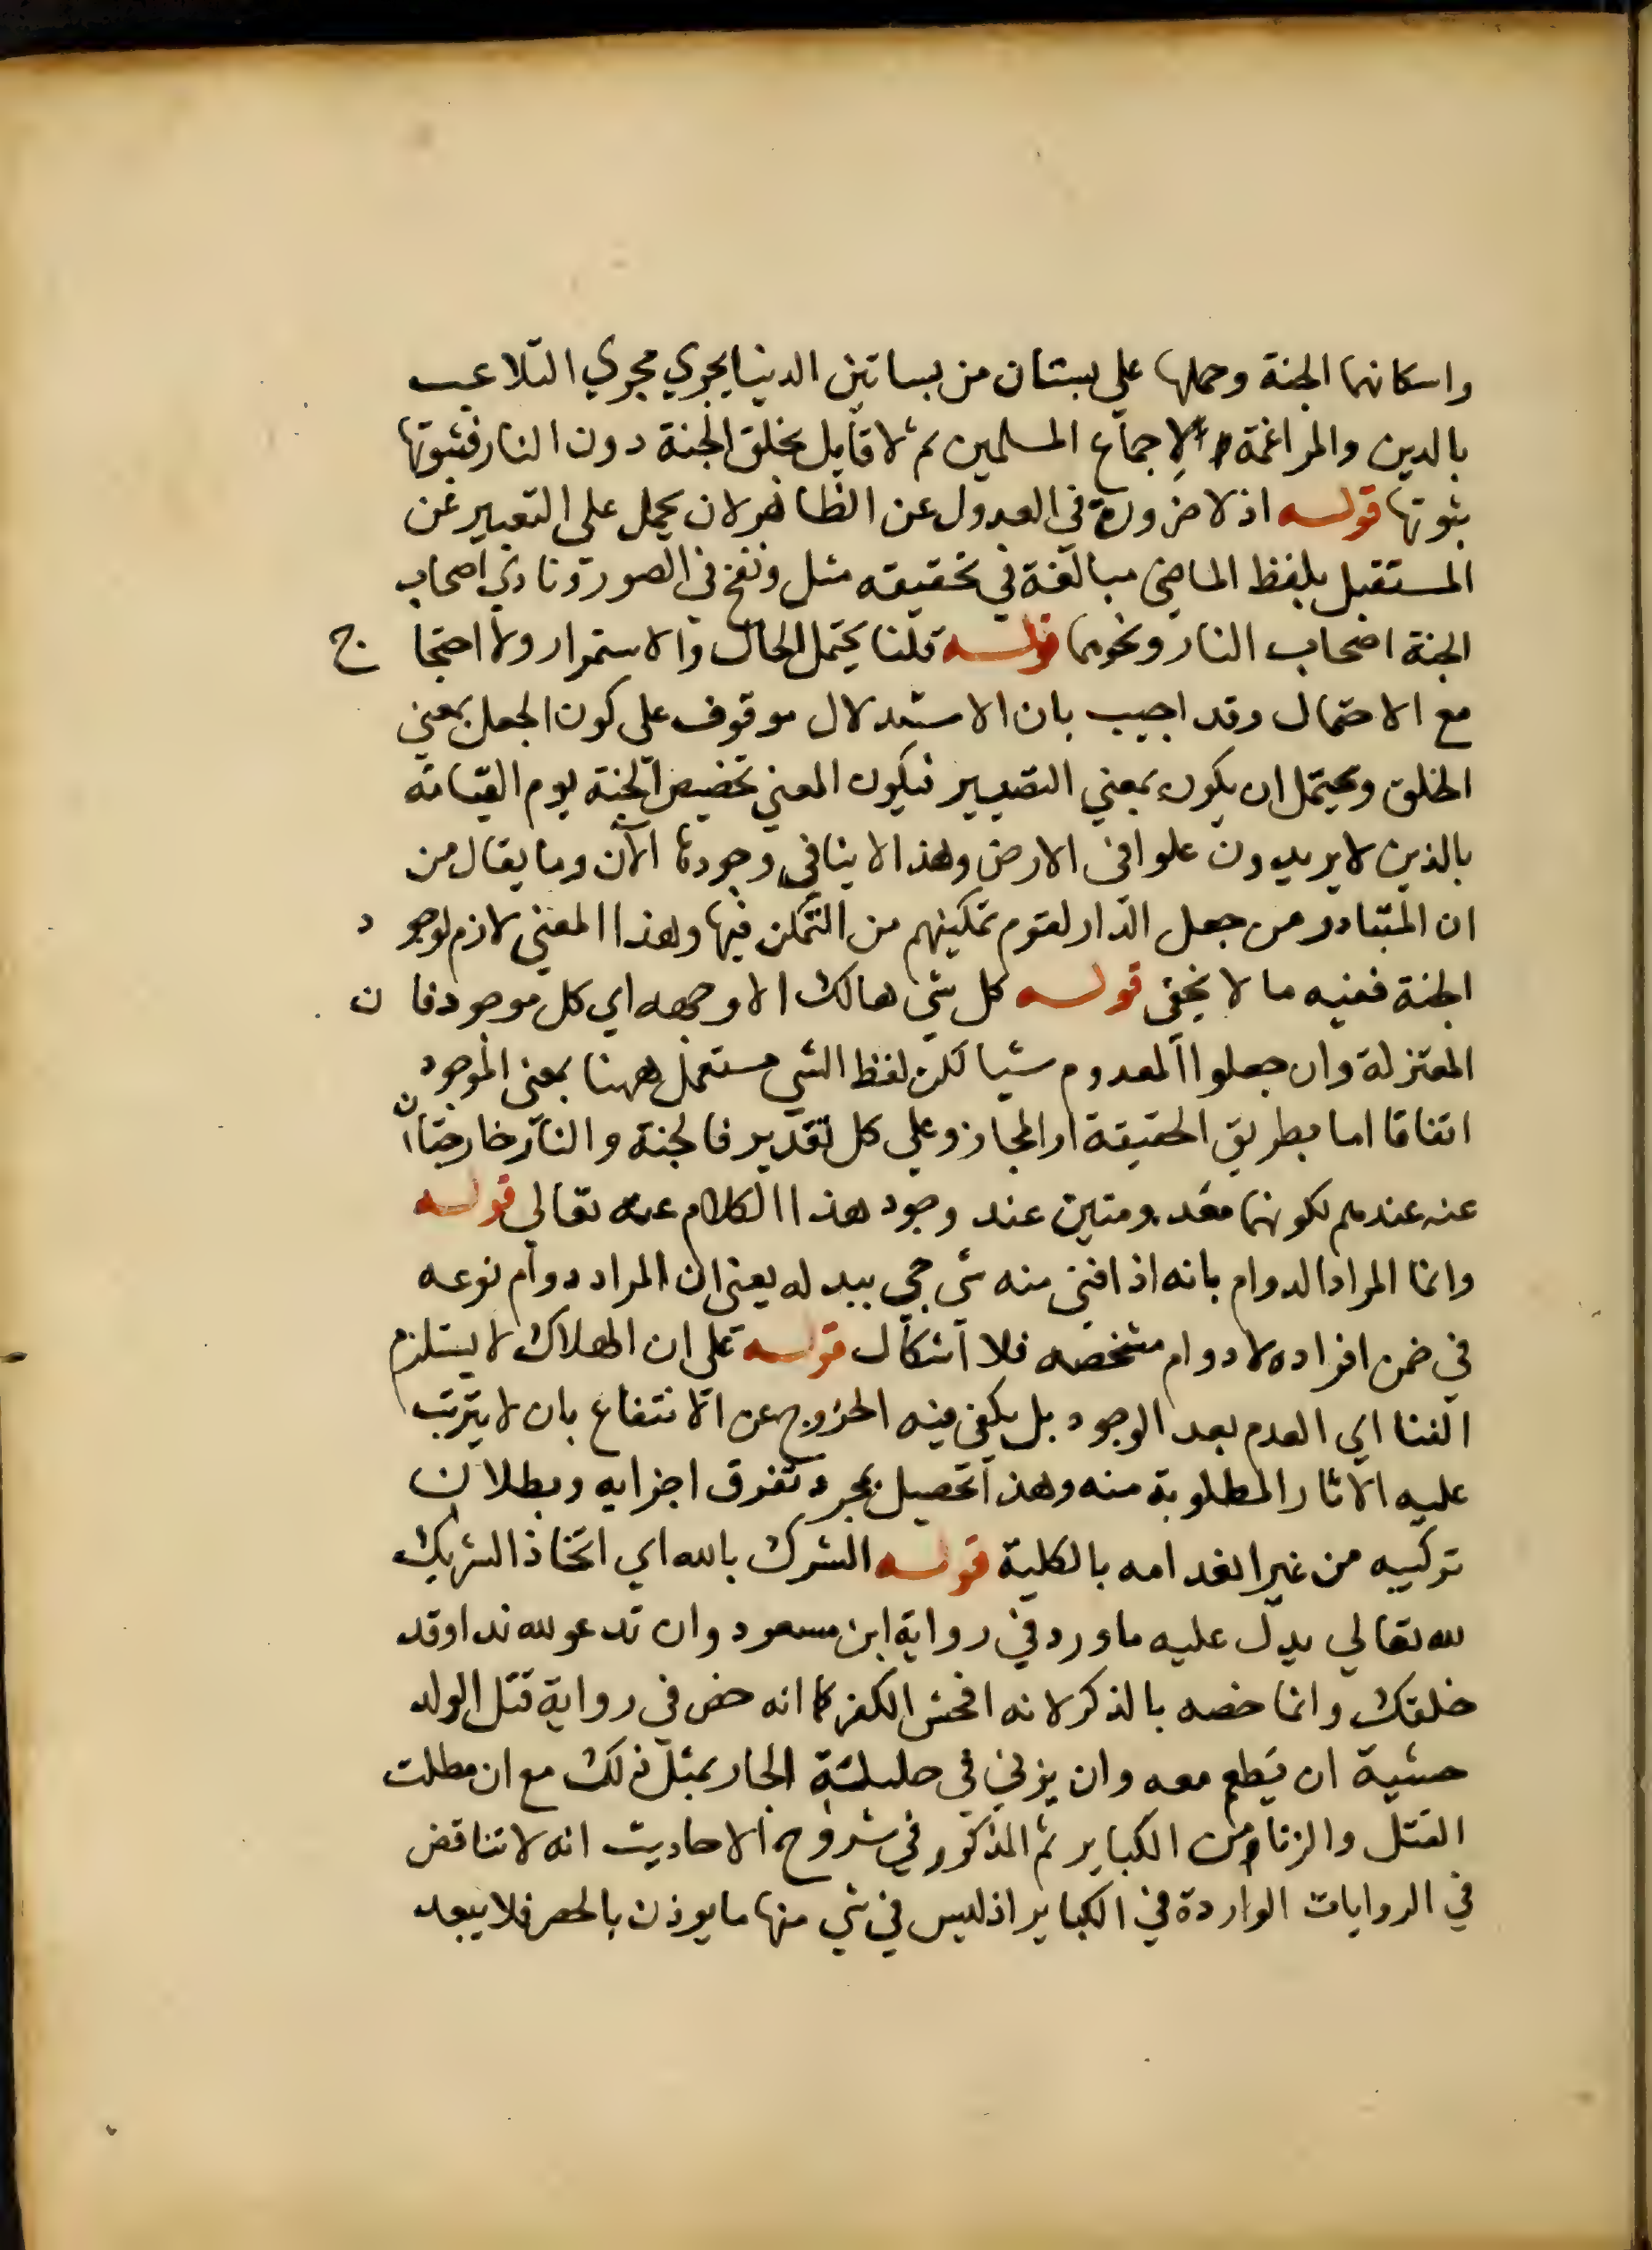 واسكانهما الجنة وحملها علي بستان من بساتين الدنيا يجري مجري التلاعب
بالدين والمراغمة لاجماع المسلمين ثم لا قايل بخلق الجنة دون النار فثبوتها
ثبوتها قوله اذ لا ضرورة في العدول عن الظاهر لان يحمل علي التعبير عن
المستقبل بلفظ الماضي مبالغة في تحقيقه مثل ونفخ في الصور ونادي اصحاب
الجنة اصحاب النار ونحوهما قوله قلنا يحتمل الحال والاستمرار ولا احتجا ج
مع الاحتمال وقد اجيب بان الاستدلال موقوف علي كون الجعل بمعني
الخلق ويحتمل ان يكون بمعني التصيير فيكون المعني تخصيص الجنة يوم القيامة
بالذين لا يريدون علوا في الارض وهذا لا ينافي وجودها الآن وما يقال من
ان المتبادر من جعل الدار لقوم تمكينهم من التمكن فيها وهذا المعني لازم لوجو د
الجنة ففيه ما لا يخفي قوله كل شي هالك الا وجهه اي كل موجود فا ن
المعتزلة وان جعلوا المعدوم شيا لكن لفظ الشي مستعمل ههنا بمعني الموجود
اتفاقا اما بطريق الحقيقة او المجاز وعلي كل تقدير فالجنة والنار خارجتان
عنه عندهم لكونهما معدومتين عند وجود هذا الكلام عنه تعالي قوله
وانما المراد الدوام بانه اذا فني منه شي جي ببدله يعني ان المراد دوام نوعه
في ضمن افراده لا دوام مشخصه فلا اشكال قوله علي ان الهلاك لا يستلزم
الفنا اي العدم بعد الوجود بل يكفي فيه الخروج عن الانتفاع بان لا يترتب
عليه الاثار المطلوبة منه وهذا تحصيل بمجرد تفرق اجزايه وبطلان
تركيبه من غير انعدامه بالكلية قوله الشرك بالله اي اتخاذ الشريك
لله تعالي يدل عليه ما ورد في رواية ابن مسعود وان تدعو لله ندا وقد
خلقك وانما خصه بالذكر لانه افحش الكفر كما انه خص في رواية قتل الولد
خشية ان يطعم معه وان يزني في حليلة الجار بمثل ذلك مع ان مطلت
القتل والزنا من الكباير ثم المذكور في شروح الاحاديث انه لا تناقض
في الروايات الواردة في الكباير اذ ليس في شي منها ما يوذن بالحصر فلا يبعد